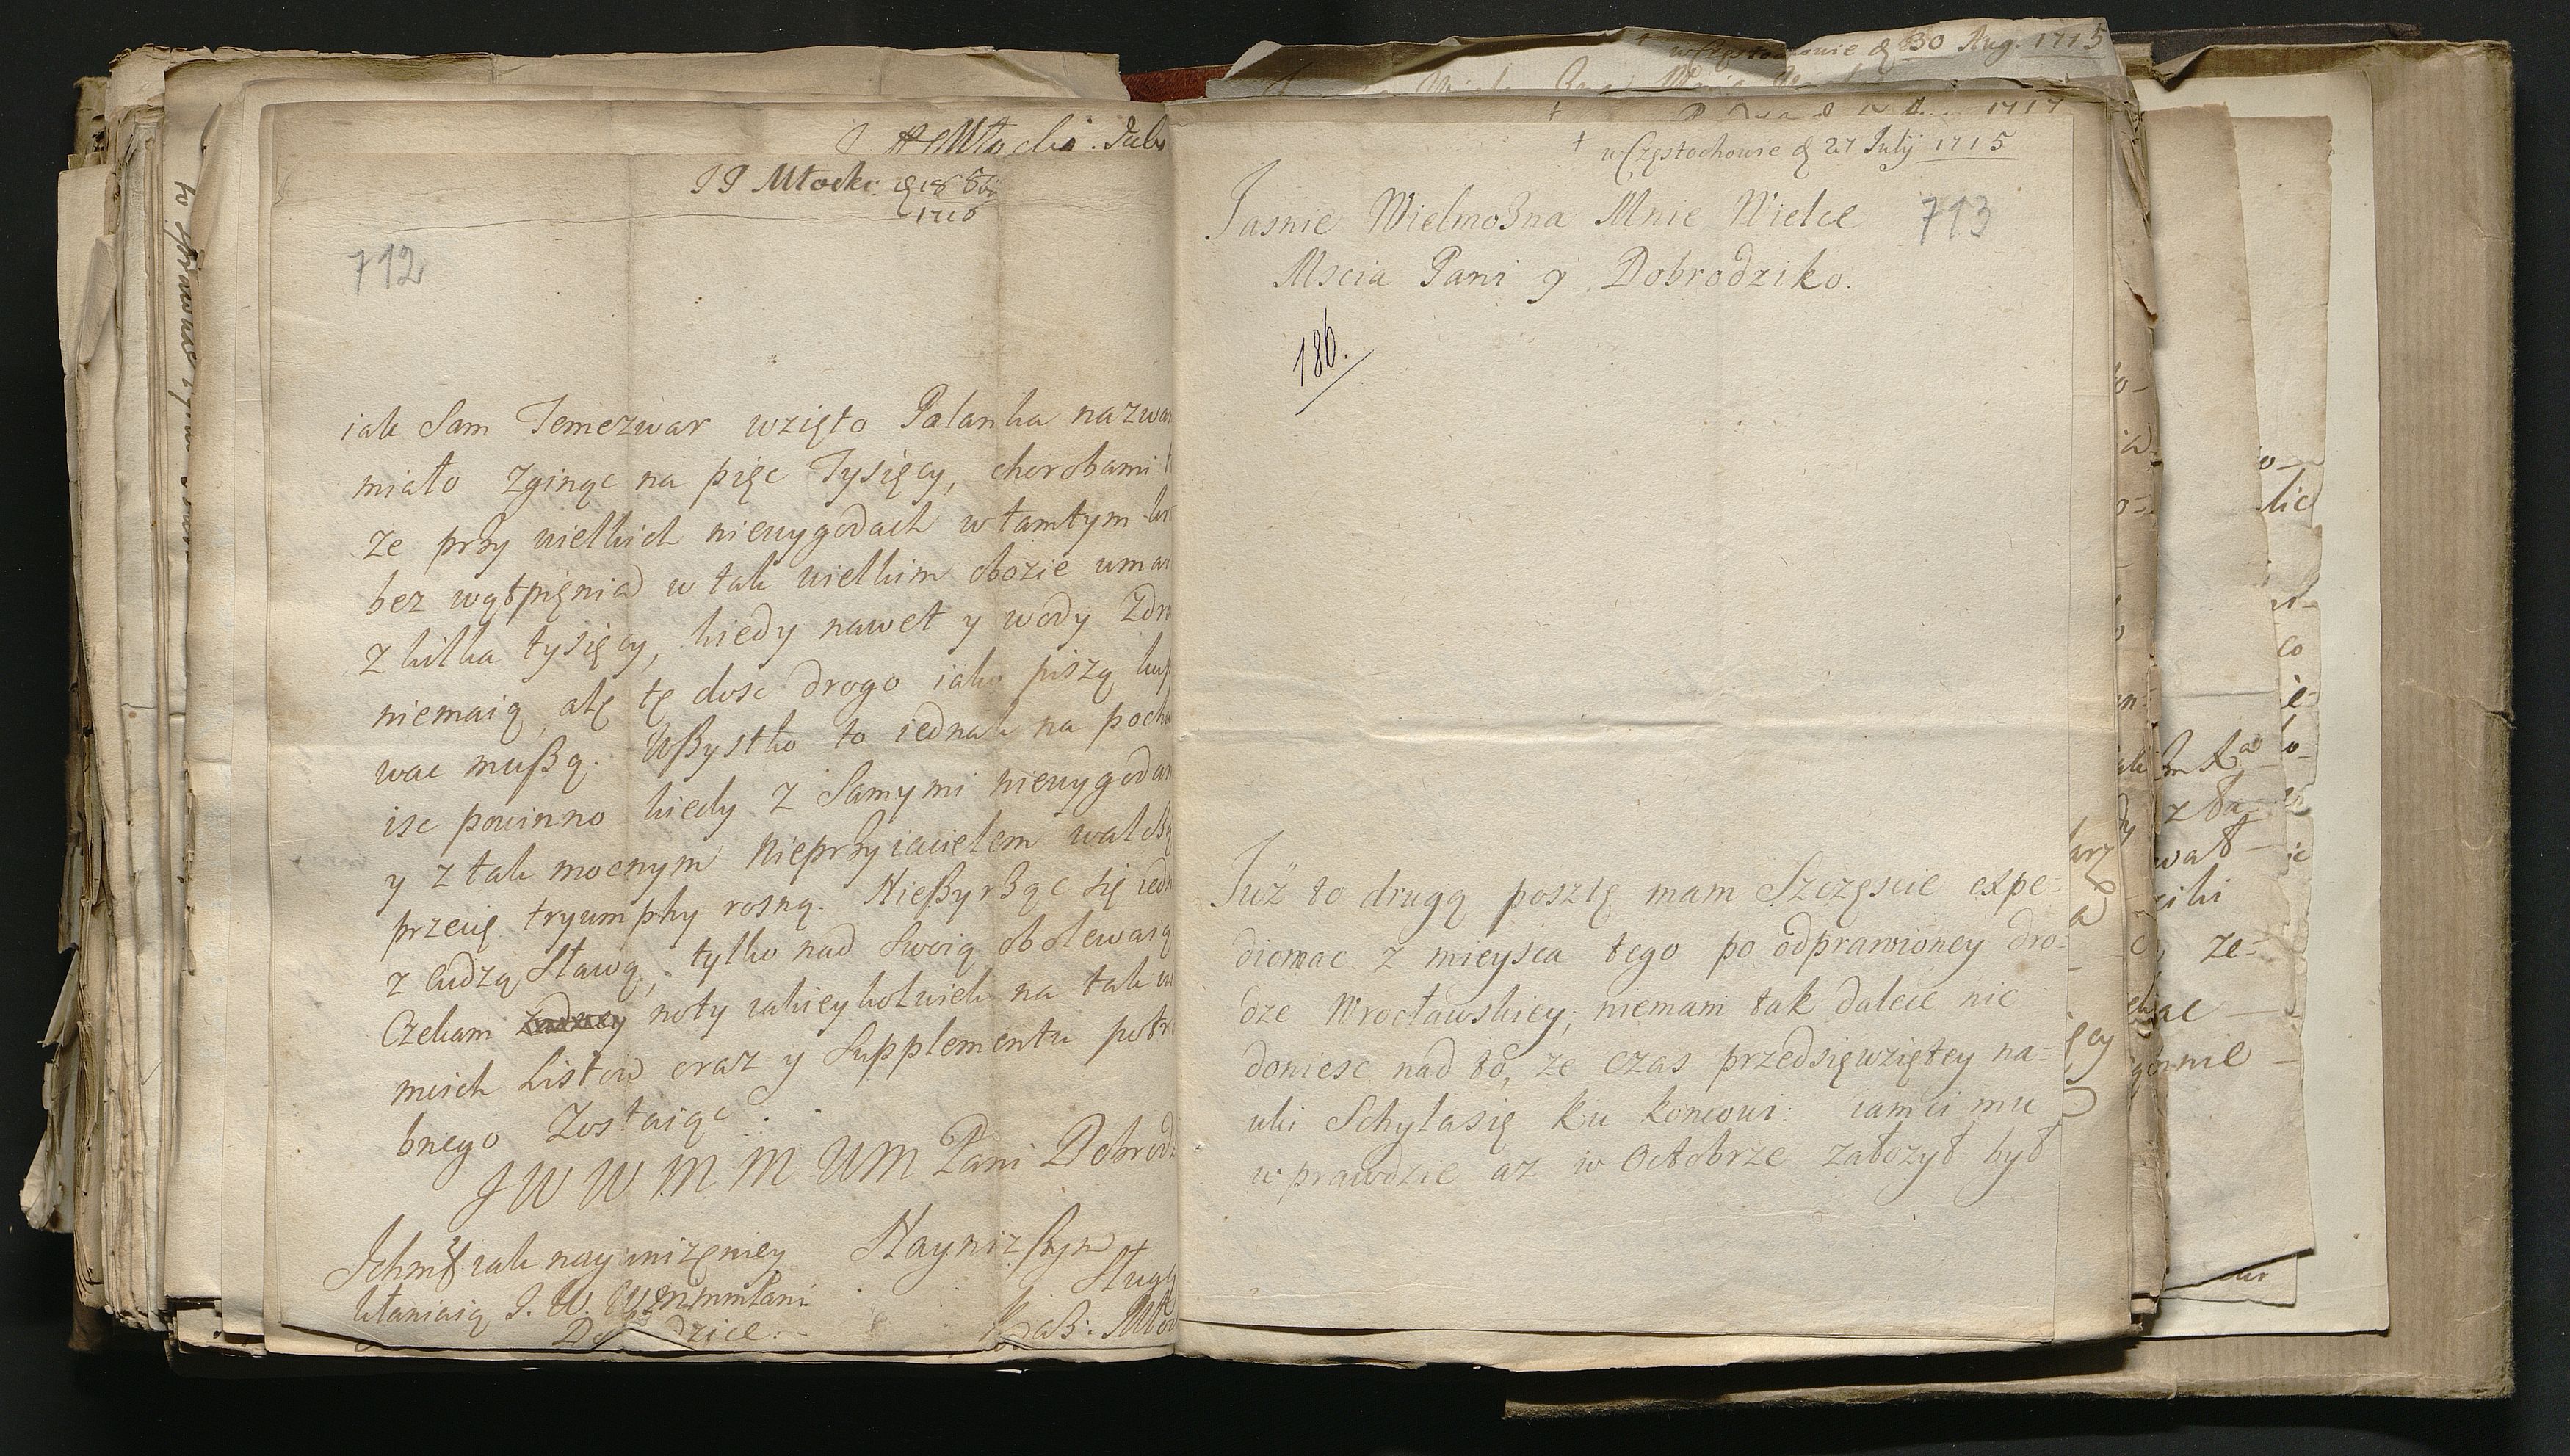 JP Młocki d 18 8br
1716
712
iak Sam Temezwar wzięto Palanka nazwa
miało zginąc na pięc Tysięcy, chorobami
ze przy wielkich niewygodach w tamtym
bez wątpięnia w tak wielkim obozie umar
z kilka tysięcy, kiedy nawet y wody zdro
niemaią, alę tę dosc drogo iako piszą kup
wac mußą. Wßystko to iednak na pocha
isc powinno kiedy z Samymi niewygodam
y z tak mocnym Nieprzyiacielem walcżą
przecię tryumphy rosną. Nießyrżąc się iedn
z cudzą Sławą, tylko nad Swoią obolewaią
Czekam noty iakieykolwiek na tak
moich Listow oraz y Supplementu potrz
bnego Zostaiąc.
J W W M M W M Pani Dobrodz
Nayniższym
Sług
iak nayuniżęniey
kłaniaią J. W.
Kaß: Młoc
w Częstochowie d 30 Aug. 1715
1717
† w Częstochowie d 27 Julij 1715
Jasnie Wielmożna Mnie Wielce
713
Mscia Pani y Dobrodziko.
186.
Juz to drugą posztę mam Szczęscie expe-
diowac z mieysca tego po odprawioney dro-
dze Wrocławskiey; niemam tak dalece nic
doniesc nad to, ze czas przedsięwziętey na-
uki Schylasię ku koncowi: iam ci mu
w prawdzie az w Octobrze załozył był